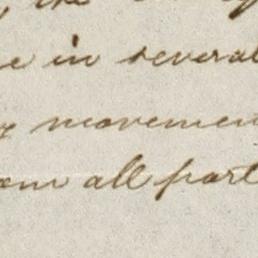 the
e in several
movemen
om all part